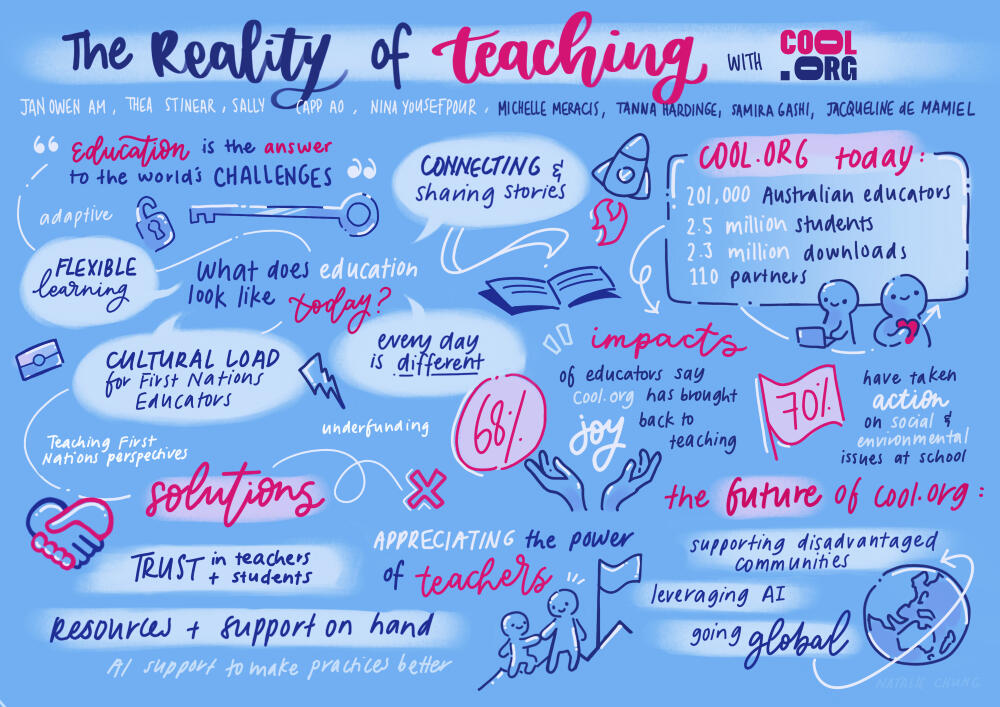 The Reality of teaching WITH COOL.ORG
JAN OWEN AM, THEA STINEAR, SALLY CAPP AO, NINA YOUSEFPOUR, MICHELLE MERACIS, TANNA HARDINGE, SAMIRA GASHI, JACQUELINE de MAMIEL
“Education is the answer
to the world's CHALLENGES”
adaptive
FLEXIBLE
learning
What does education
look like today?
CULTURAL LOAD
for First Nations
Educators
every day
is different
underfunding
Teaching First
Nations perspectives
CONNECTING &
sharing stories
COOL.ORG today:
201,000 Australian educators
2.5 million students
2.3 million downloads
110 partners
impacts
68%
of educators say
Cool.org has brought
joy back to
teaching
70%
have taken
action
on social &
environmental
issues at school
solutions
TRUST in teachers
+ students
Resources + support on hand
AI support to make practices better
APPRECIATING the power
of teachers
the future of cool.org:
supporting disadvantaged
communities
leveraging AI
going global
NATALIE CHUNG